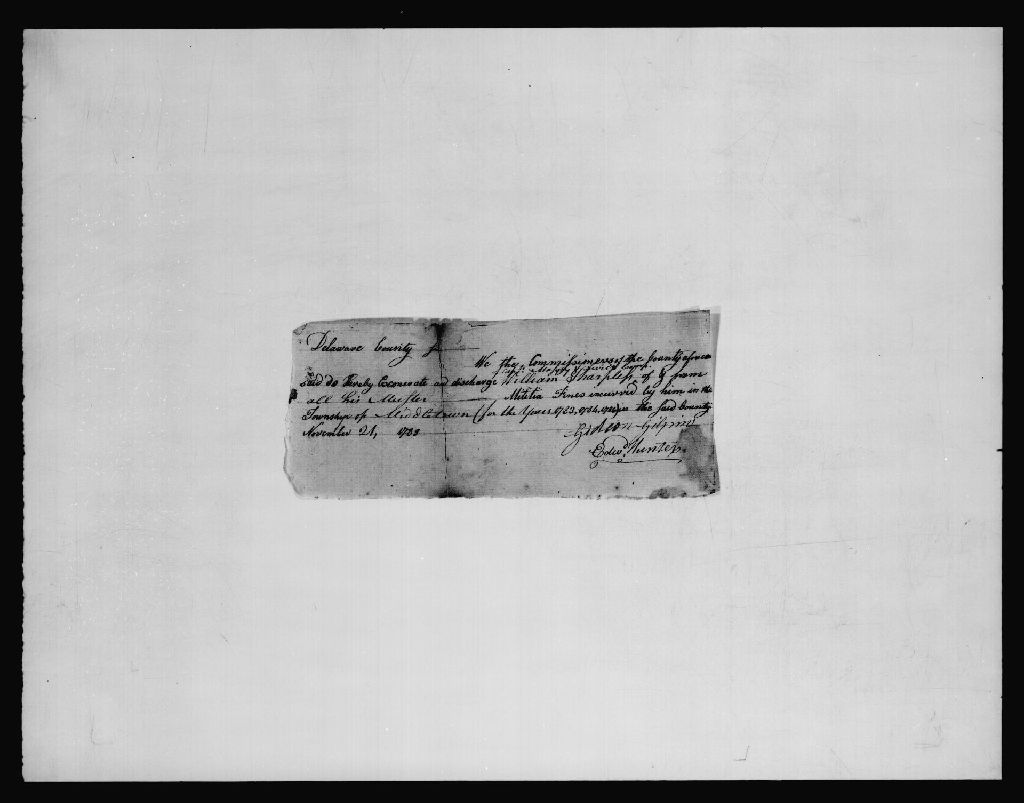 Delaware County
We the Commissioners of the County afore
said do hereby Exonerate and discharge William Sharpless of & from
all his Muster Militia Fines incurred by him in the
Township of Middletown (for the Years 1783, 1784, in the said County
November 21, 1788
Gideon Gilpin
Edwd. Hunter